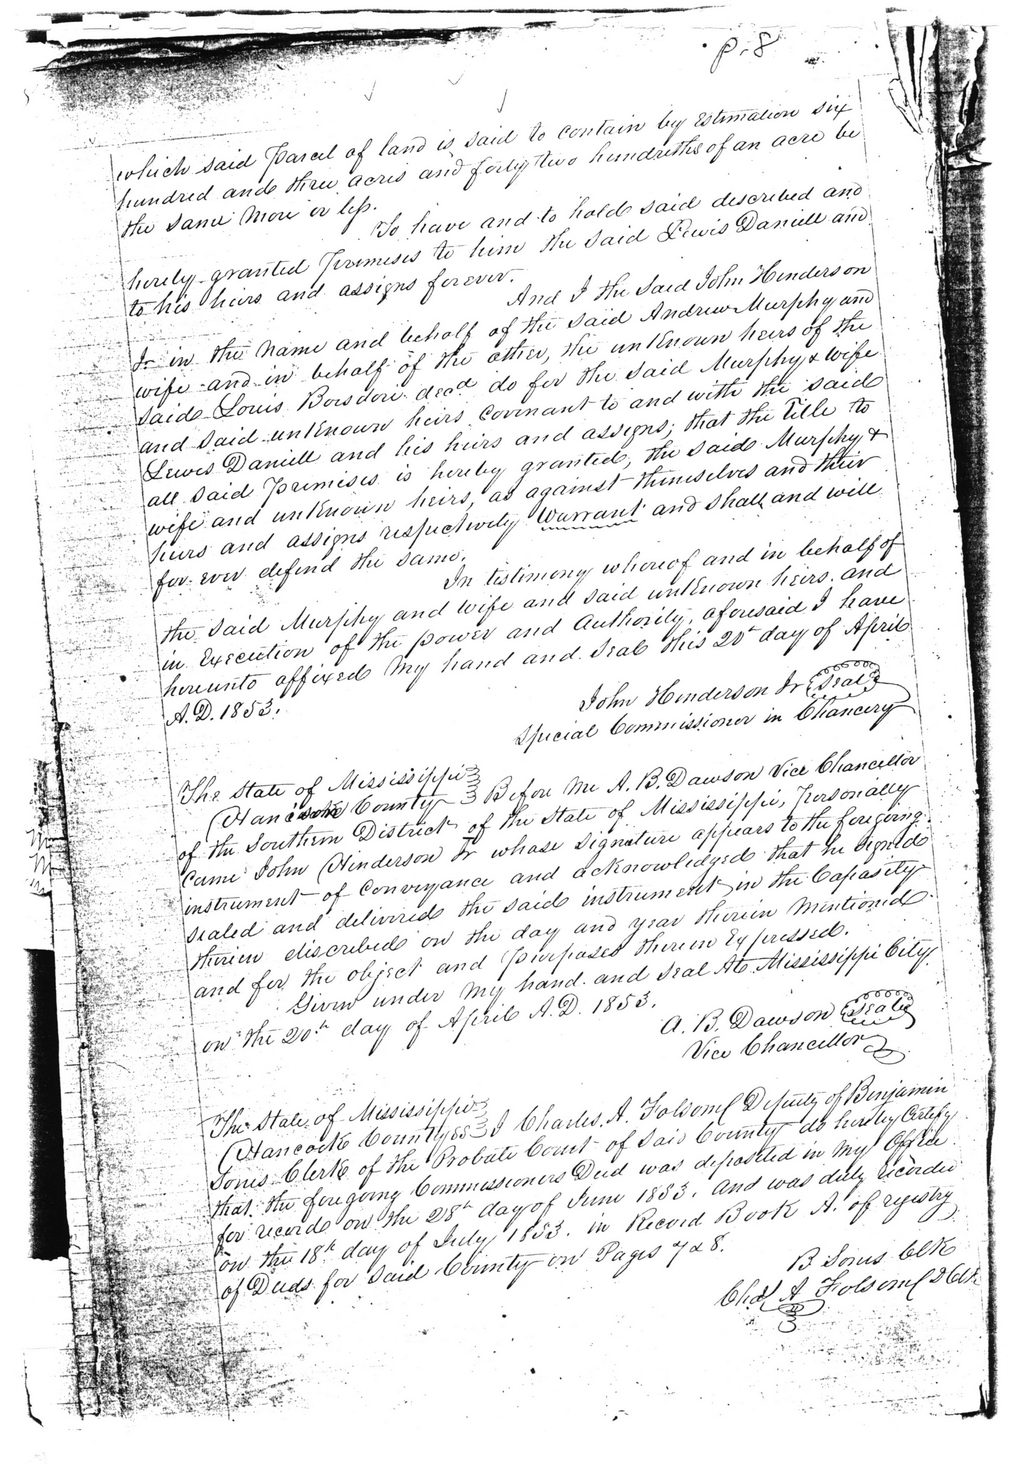 p-8
which said Parcel of land is said to contain by Estimation six
hundred and three acres and forty two hundreths of an acre be
the same More or less.
To have and to hold said described and
hereby granted Premises to him the said Lewis Daniell and
to his heirs and assigns forever.
And I the said John Henderson
Jr in the name and behalf of the said Andrew Murphy and
wife and in behalf of the other, the unknown heirs of the
said Louis Boisdore decd do for the said Murphy & wife
and said unknown heirs covenant to and with the said
Lewis Daniell and his heirs and assigns; that the title to
all said Premises is hereby granted, the said Murphy &
wife and unknown heirs, as against themselves and their
heirs and assigns respectively Warrant and shall and will
for ever defend the same.
In testimony whereof and in behalf of
the said Murphy and wife and said unknown heirs and
in Execution of the power and Authority, aforesaid I have
hereunto affixed My hand and seal this 20t day of April
A.D. 1853.
John Henderson Jr Seal
Special Commissioner in Chancery
The State of Mississippi
Hancock County Before Me A. B. Dawson Vice Chancellor
of the Southern District of the State of Mississippi, Personally
came John Henderson Jr whose signature appears to the foregoing
instrument of Conveyance and acknowledged that he signed
sealed and delivered the said instrument in the Capasity
therein discribed on the day and year therein Mentioned
and for the object and Purposes therein Expressed.
Given under My hand and seal At Mississippi City
on the 20th day of April A.D. 1853.
A. B. Dawson Seal
Vice Chancellor
The State of Mississippi
Hancock County SS I Charles A. Folsom Deputy of Benjamin
Sones Clerk of the Probate Court of said County do hereby Certify
that the foregoing Commissioners Deed was deposited in My Office
for record on the 28th day of June 1853. and was duly recorded
on the 18th day of July 1853. in Record Book A. of registry
of Deeds for said County on Pages 7 & 8.
B Sones Clk
Chas A Folsom D Clk